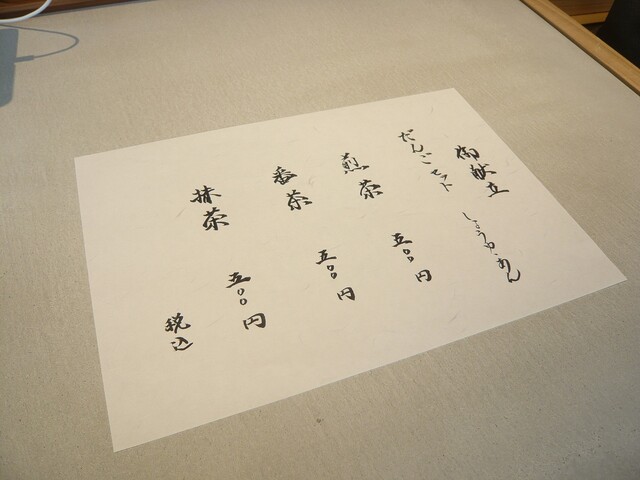 御献立
だんごセット しょうゆ・あん
煎茶 五〇〇円
番茶 五〇〇円
抹茶 五〇〇円
税込